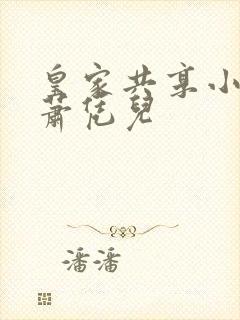 皇家共享小
萧恁儿
潘潘